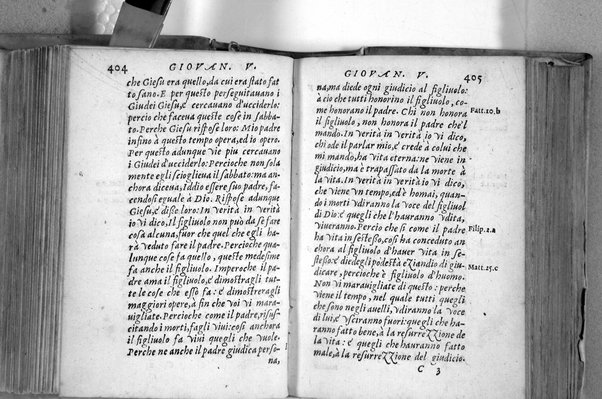 404 GIOVAN. V.
che Giesu era quello, da cui era stato fat
to sano. E per questo perseguitauano i
Giudei Giesu, & cercauano d'ucciderlo:
percio che faceua queste cose in sabba-
to. Perche Giesu rispose loro: Mio padre
infino à questo tempo opera, ed io opero.
Per questo adunque vie piu cercauano
i Giudei d'ucciderlo: Percioche non sola
mente egli scioglieua il sabbato: ma an-
chora diceua, Iddio essere suo padre, fa-
cendosi eguale à Dio. Rispose adunque
Giesu, & disse loro: In verità in verità
io vi dico, Il figliuol non può da se fare
cosa alcuna, fuor che quel che egli ha-
rà veduto fare il padre. Percioche qua-
lunque cose fa quello, queste medesime
fa anche il figliuolo. Imperoche il pa-
dre ama il figliuolo, & dimostragli tut-
te le cose che esso fa: & dimostreragli
maggiori opere, à fin che voi vi mara-
uigliate. Percioche come il padre, risu-
scitando i morti, fagli viui: cosi anchora
il figliuolo fa viui quegli che vuole.
Perche ne anche il padre giudica perso-
na,
GIOVAN. V. 405
na, ma diede ogni giudicio al figliuolo:
à cio che tutti honorino il figliuolo, co-
me honorano il padre. Chi non honora
il figliuolo, non honora il padre che'l
mandò. In verità in verità io vi dico,
chi ode il parlar mio, & crede à colui che
mi mandò, ha vita eterna: ne viene in
giudicio, ma è trapassato da la morte à
la vita. In verità in verità io vi dico,
che viene vn tempo, ed è homai, quan-
do i morti vdiranno la voce del figliuol
di Dio: & quegli che l'hauranno vdita,
viueranno. Percio che si come il padre
ha vita in se stesso, cosi ha conceduto an
chora al figliuolo d'hauer vita in se-
stesso: & diedegli podestà eziandio di giu-
dicare, percioche è figliuolo d'huomo.
Non vi marauigliate di questo: perche
viene il tempo, nel quale tutti quegli
che sono negli auelli, vdiranno la voce
di lui, & vsciranno fuori: quegli che ha-
ranno fatto bene, à la resurezzione de
la vita: & quegli che hauranno fatto
male, à la resurezzione del giudicio.
C 3
Fatt. 10. b
Filip. 2. a
Mat. 25. c